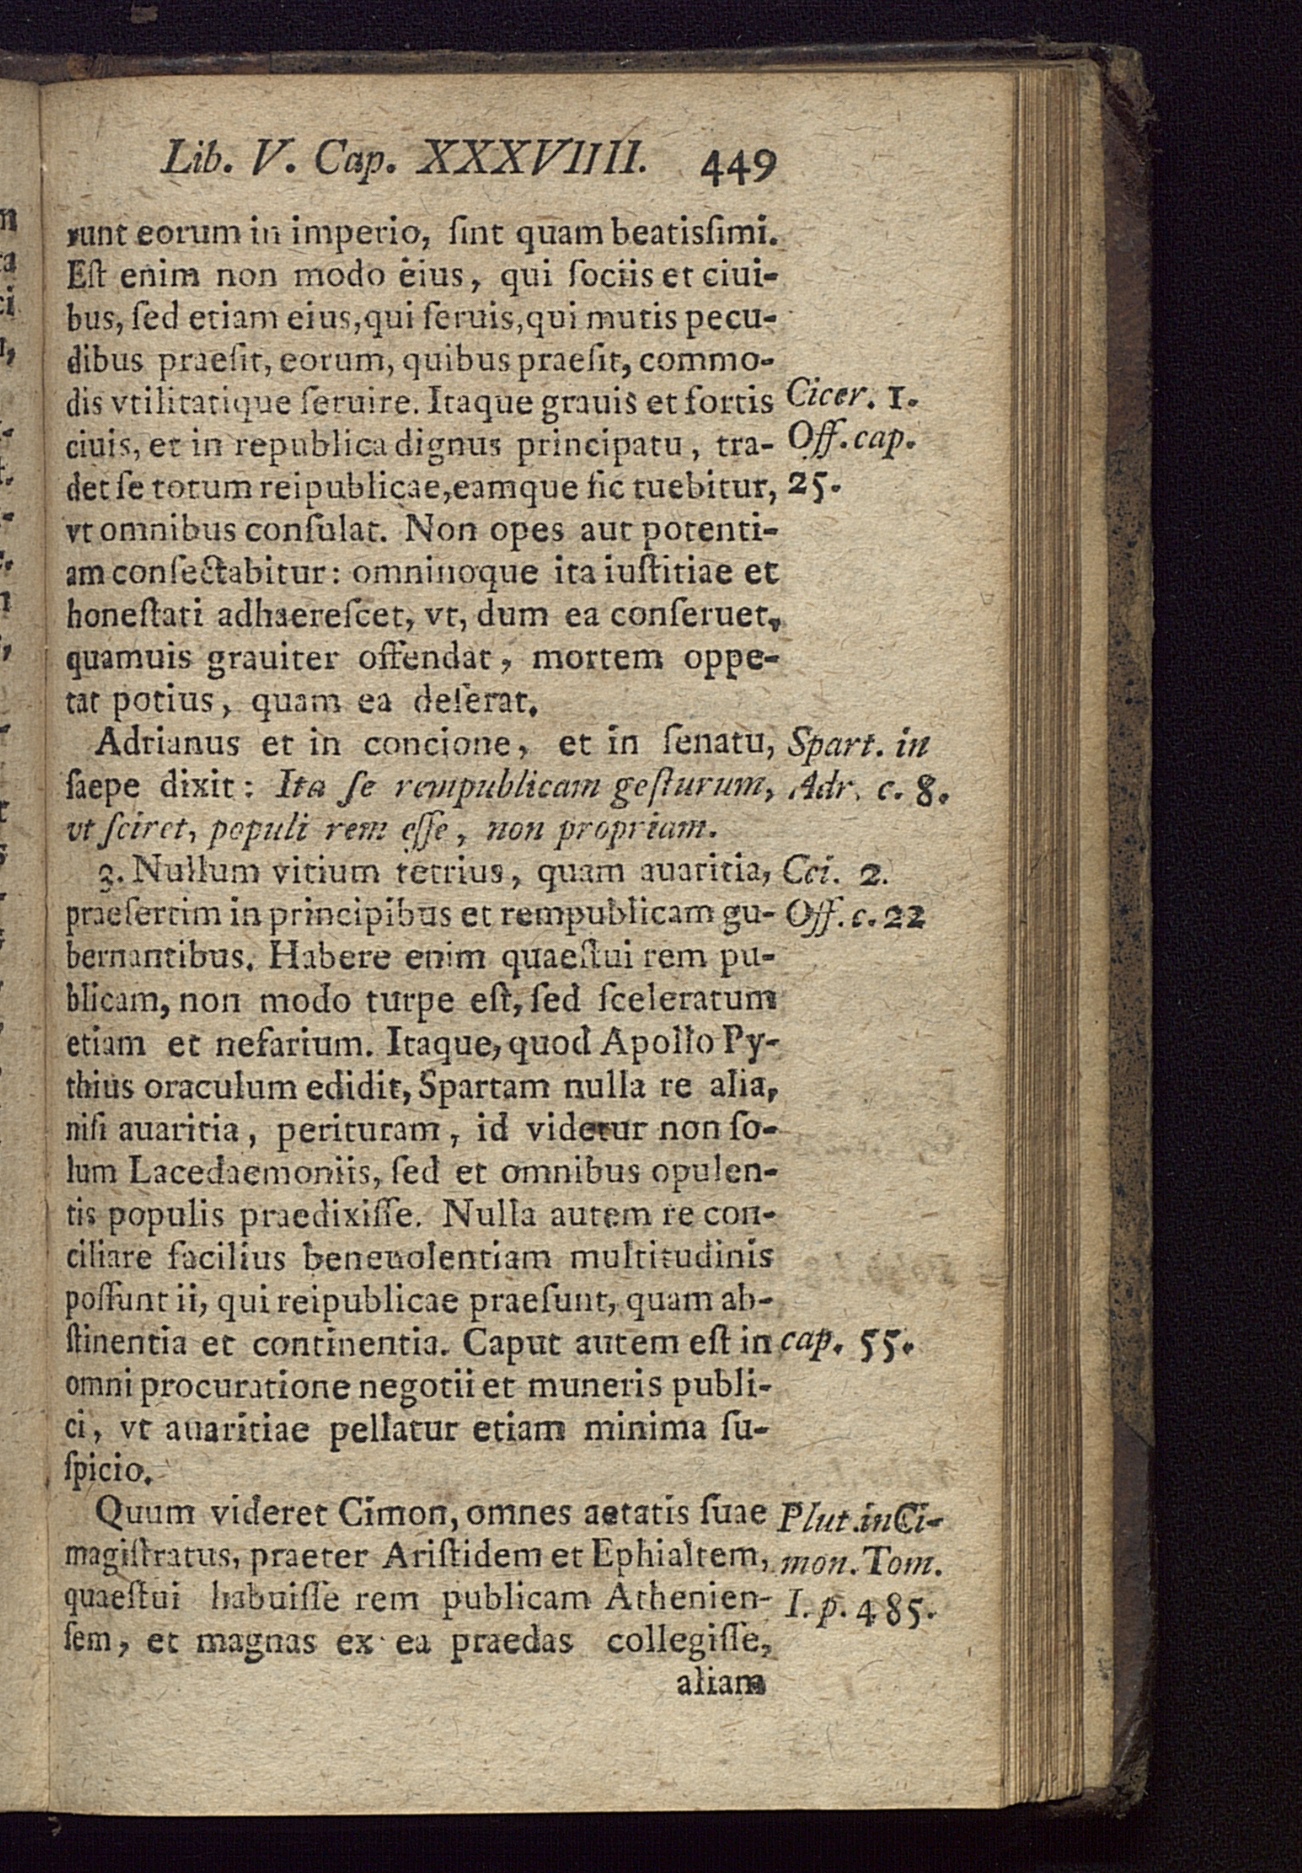 Lib. V. Cap. XXXVIIII. 449
runt eorum in imperio, ſint quam beatisſimi.
Eſt enim non modo eius, qui ſociis et ciui-
bus, ſed etiam eius, qui ſeruis, qui mutis pecu-
dibus praeſit, eorum, quibus praeſit, commo-
dis vtilitatique ſeruire. Itaque grauis et fortis
Cicer. 1.
ciuis, et in republica dignus principatu, tra-
Off. cap.
det ſe totum reipublicae, eamque ſic tuebitur,
25.
vt omnibus conſulat. Non opes aut potenti-
am conſectabitur: omninoque ita iuſtitiae et
honeſtati adhaereſcet, vt, dum ea conſeruet,
quamuis grauiter offendat, mortem oppe-
tat potius, quam ea deſerat.
Adrianus et in concione, et in ſenatu,
Spart. in
ſaepe dixit: Ita ſe rempublicam geſturum,
Adr. c. 8.
vt ſciret, populi rem eſſe, non propriam.
3. Nullum vitium tetrius, quam auaritia,
Cci. 2.
praeſertim in principibus et rempublicam gu-
Off. c. 22
bernantibus. Habere enim quaeſtui rem pu-
blicam, non modo turpe eſt, ſed ſceleratum
etiam et nefarium. Itaque, quod Apollo Py-
thius oraculum edidit, Spartam nulla re alia,
niſi auaritia, perituram, id videtur non ſo-
lum Lacedaemoniis, ſed et omnibus opulen-
tis populis praedixiſſe. Nulla autem re con-
ciliare facilius beneuolentiam multitudinis
poſſunt ii, qui reipublicae praeſunt, quam ab-
ſtinentia et continentia. Caput autem eſt in
cap. 55.
omni procuratione negotii et muneris publi-
ci, vt auaritiae pellatur etiam minima ſu-
ſpicio.
Quum videret Cimon, omnes aetatis ſuae
Plut. in Ci-
magiſtratus, praeter Ariſtidem et Ephialtem,
mon. Tom.
quaeſtui habuiſſe rem publicam Athenien-
I. p. 485.
ſem, et magnas ex ea praedas collegiſſe,
aliam